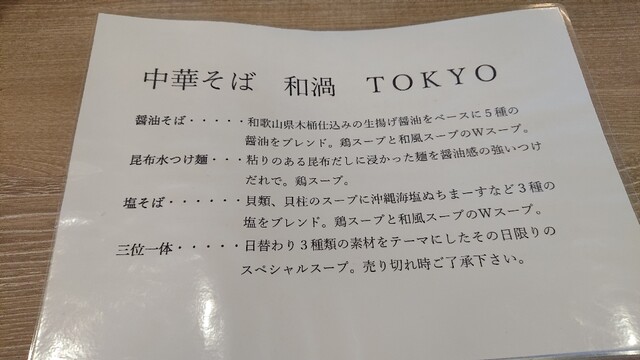 中華そば 和渦 TOKYO
醤油そば・・・・・和歌山県木桶仕込みの生揚げ醤油をベースに５種の
醤油をブレンド。鶏スープと和風スープのＷスープ。
昆布水つけ麺・・・粘りのある昆布だしに浸かった麺を醤油感の強いつけ
だれで。鶏スープ。
塩そば・・・・・・貝類、貝柱のスープに沖縄海塩ぬちまーすなど３種の
塩をブレンド。鶏スープと和風スープのＷスープ。
三位一体・・・・・日替わり３種類の素材をテーマにしたその日限りの
スペシャルスープ。売り切れ時ご了承下さい。